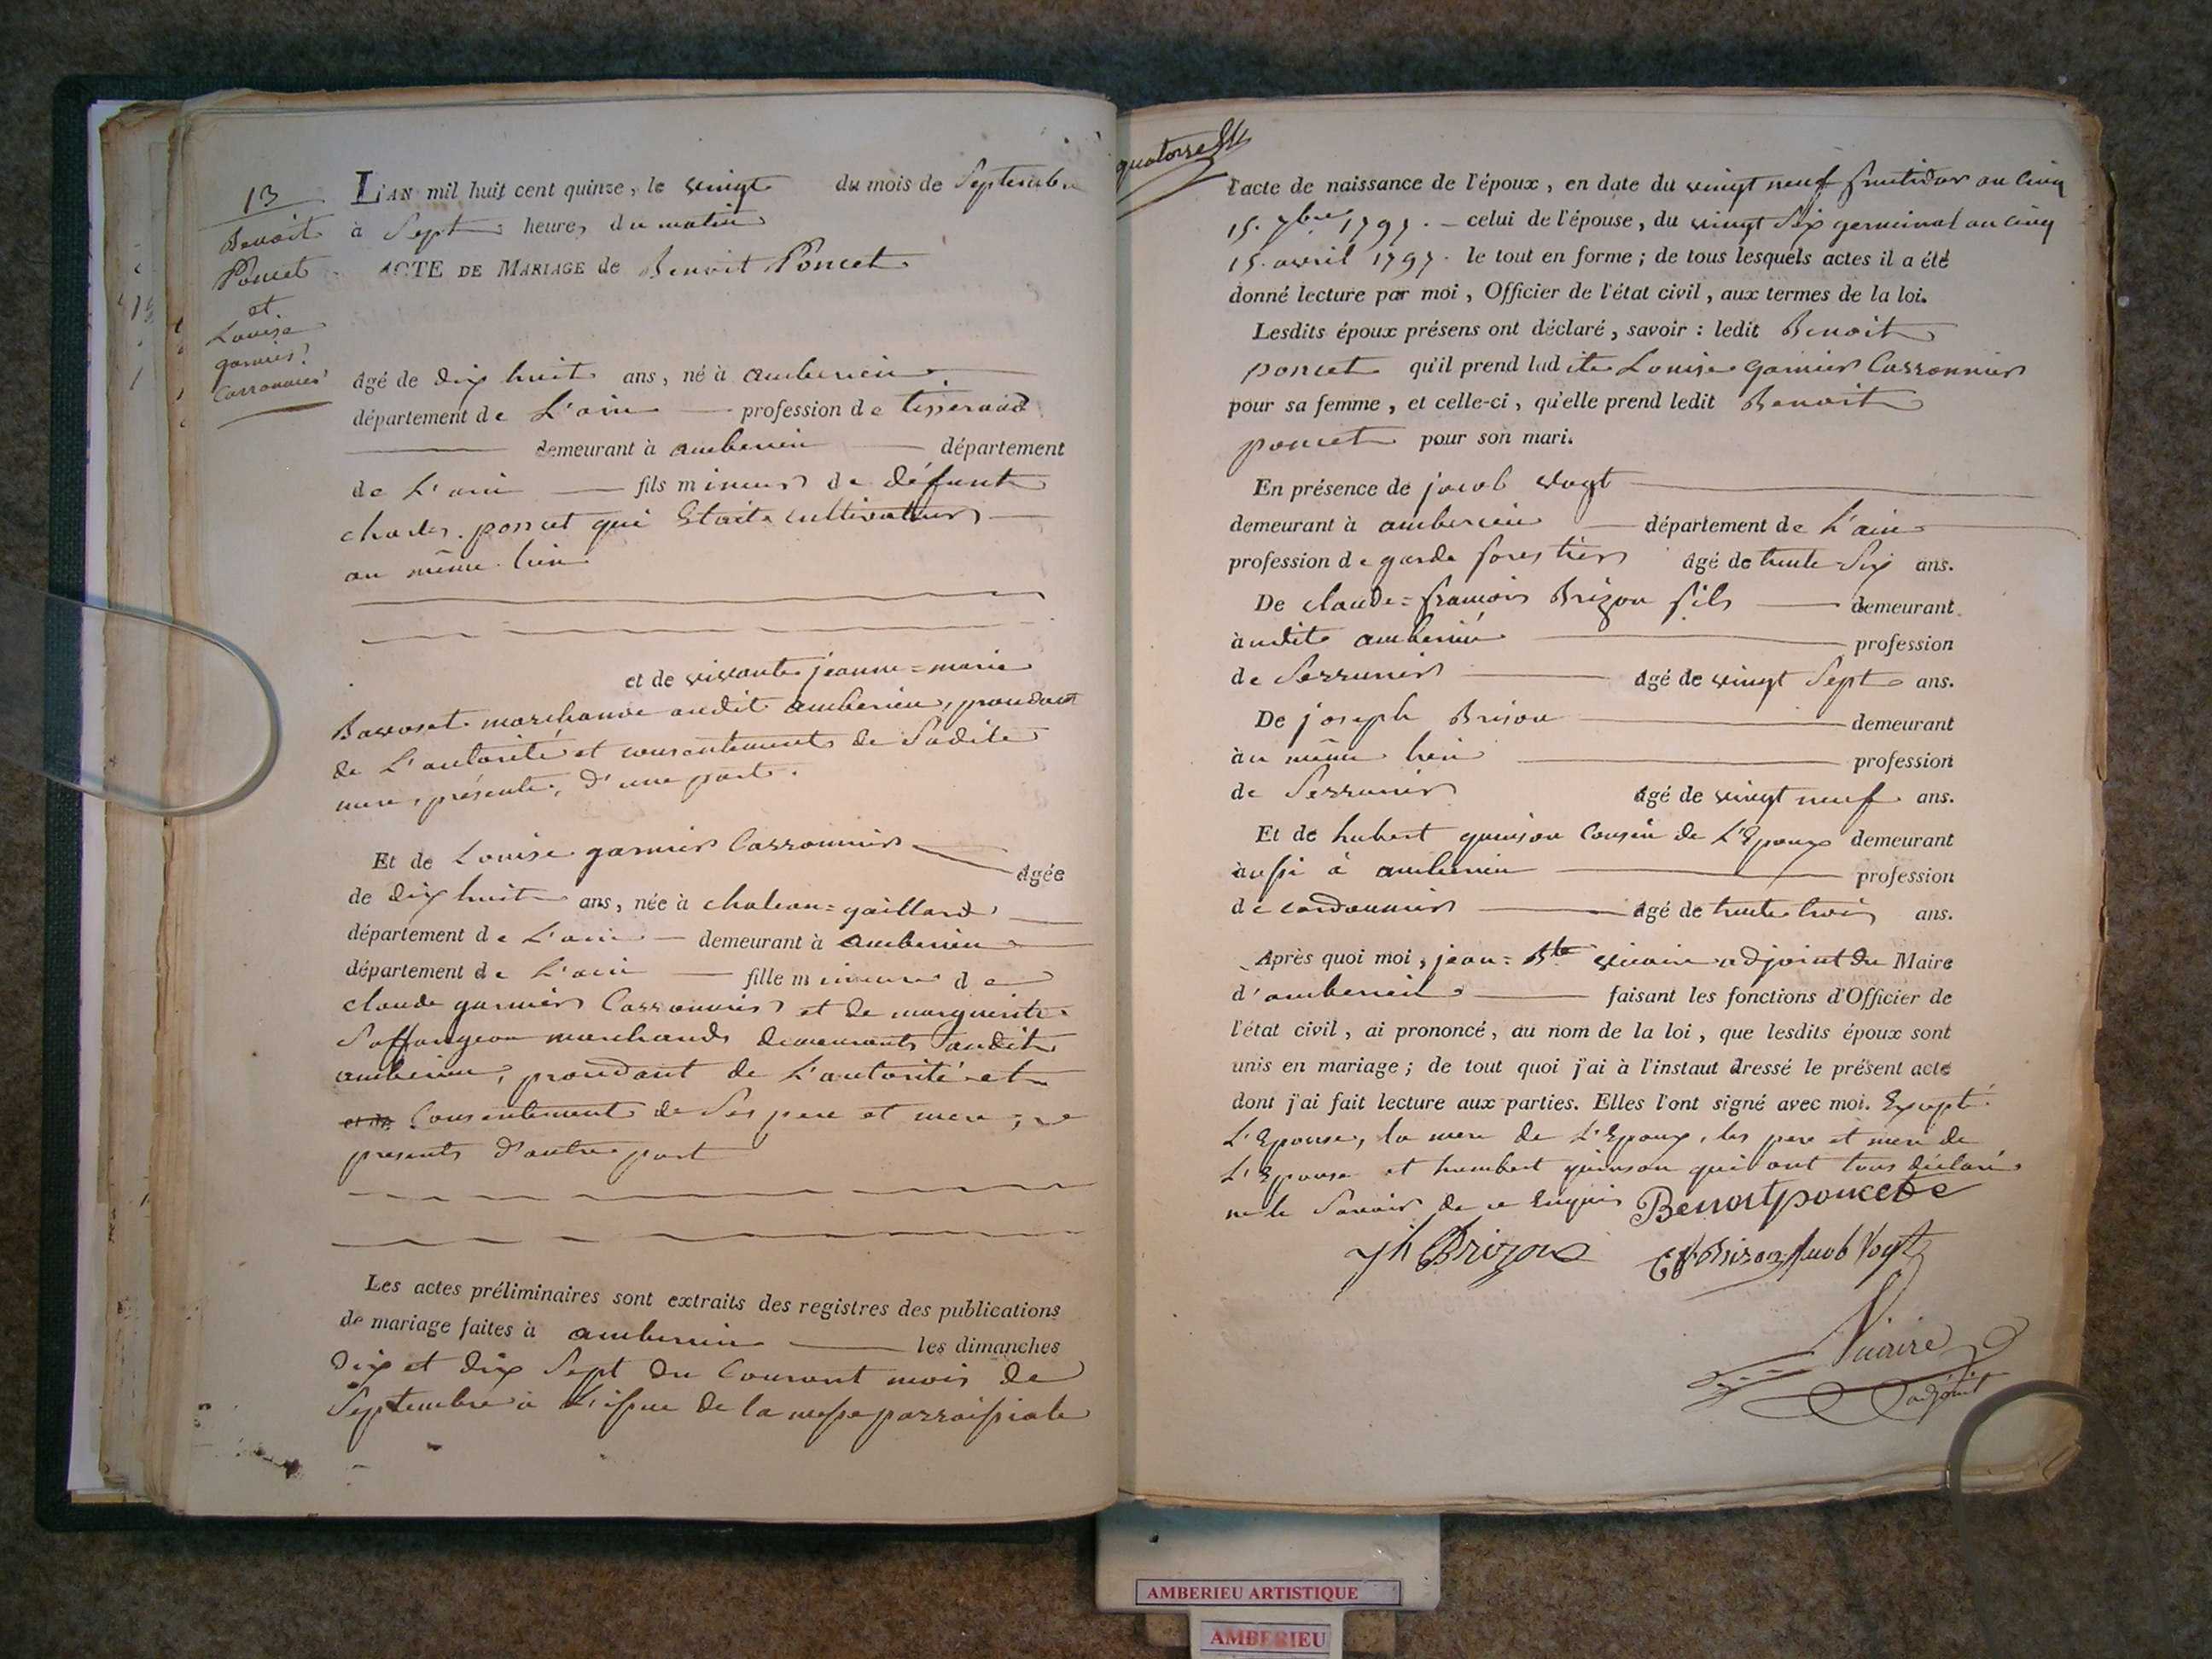 13
Benoit
Poncet
et
Louise
garnier
Carronnier
L'AN mil huit cent quinze, le vingt du mois de Septembre
à Sept heures du matin
ACTE DE MARIAGE de Benoit Poncet
âgé de dix huit ans, né à amberieu
département de L'ain profession de tisserand
demeurant à amberieu département
de L'ain fils mineur de défunt
charles poncet qui Etait cultivateur
au même lieu
et de vivante jeanne=marie
marchande audit amberieu, procédant
de L'autorité et consentement de Sadite
mere, présente, d'une part.
Et de Louise garnier Carronnier âgée
de dix huit ans, née à chateau=gaillard
département de L'ain demeurant à amberieu
département de L'ain fille mineure de
claude garnier Carronnier et de marguerite
marchands demeurants audit
amberieu, procédant de L'autorité et
Consentement de Ses pere et mere,
presents d'autre part
Les actes préliminaires sont extraits des registres des publications
de mariage faites à amberieu les dimanches
Dix et dix Sept du Courant mois de
Septembre à L'issue de la messe parroissiale
quatorze
l'acte de naissance de l'époux, en date du vingt neuf fructidor an Cinq
15. 7bre 1797. celui de l'épouse, du vingt Six germinal an Cinq
15. avril 1797. le tout en forme; de tous lesquels actes il a été
donné lecture par moi, Officier de l'état civil, aux termes de la loi.
Lesdits époux présens ont déclaré, savoir : ledit Benoit
poncet qu'il prend ladite Louise garnier Carronnier
pour sa femme, et celle-ci, qu'elle prend ledit Benoit
poncet pour son mari.
En présence de jacob vogt
demeurant à amberieu département de L'ain
profession de garde forestier âgé de trente Six ans.
De claude=francois Brizon fils demeurant
audit amberieu profession
de Serrurier âgé de vingt Sept ans.
De joseph Brison demeurant
au même lieu profession
de Serrurier âgé de vingt neuf ans.
Et de hubert quinson Cousin de L'Epoux demeurant
aussi à amberieu profession
de cordonnier âgé de trente trois ans.
Après quoi moi, jean=Bte vicaire adjoint du Maire
d'amberieu faisant les fonctions d'Officier de
l'état civil, ai prononcé, au nom de la loi, que lesdits époux sont
unis en mariage; de tout quoi j'ai à l'instant dressé le présent acte
dont j'ai fait lecture aux parties. Elles l'ont signé avec moi. Excepté
L'Epouse, la mere de L'Epoux, les pere et mere de
L'Epouse et humbert quinson qui ont tous déclaré
ne le Savoir de ce Enquis Benoit poncet
jh Brizon Cf Brison Jacob Vogt
Vicaire
adjoint
AMBERIEU ARTISTIQUE
AMBERIEU